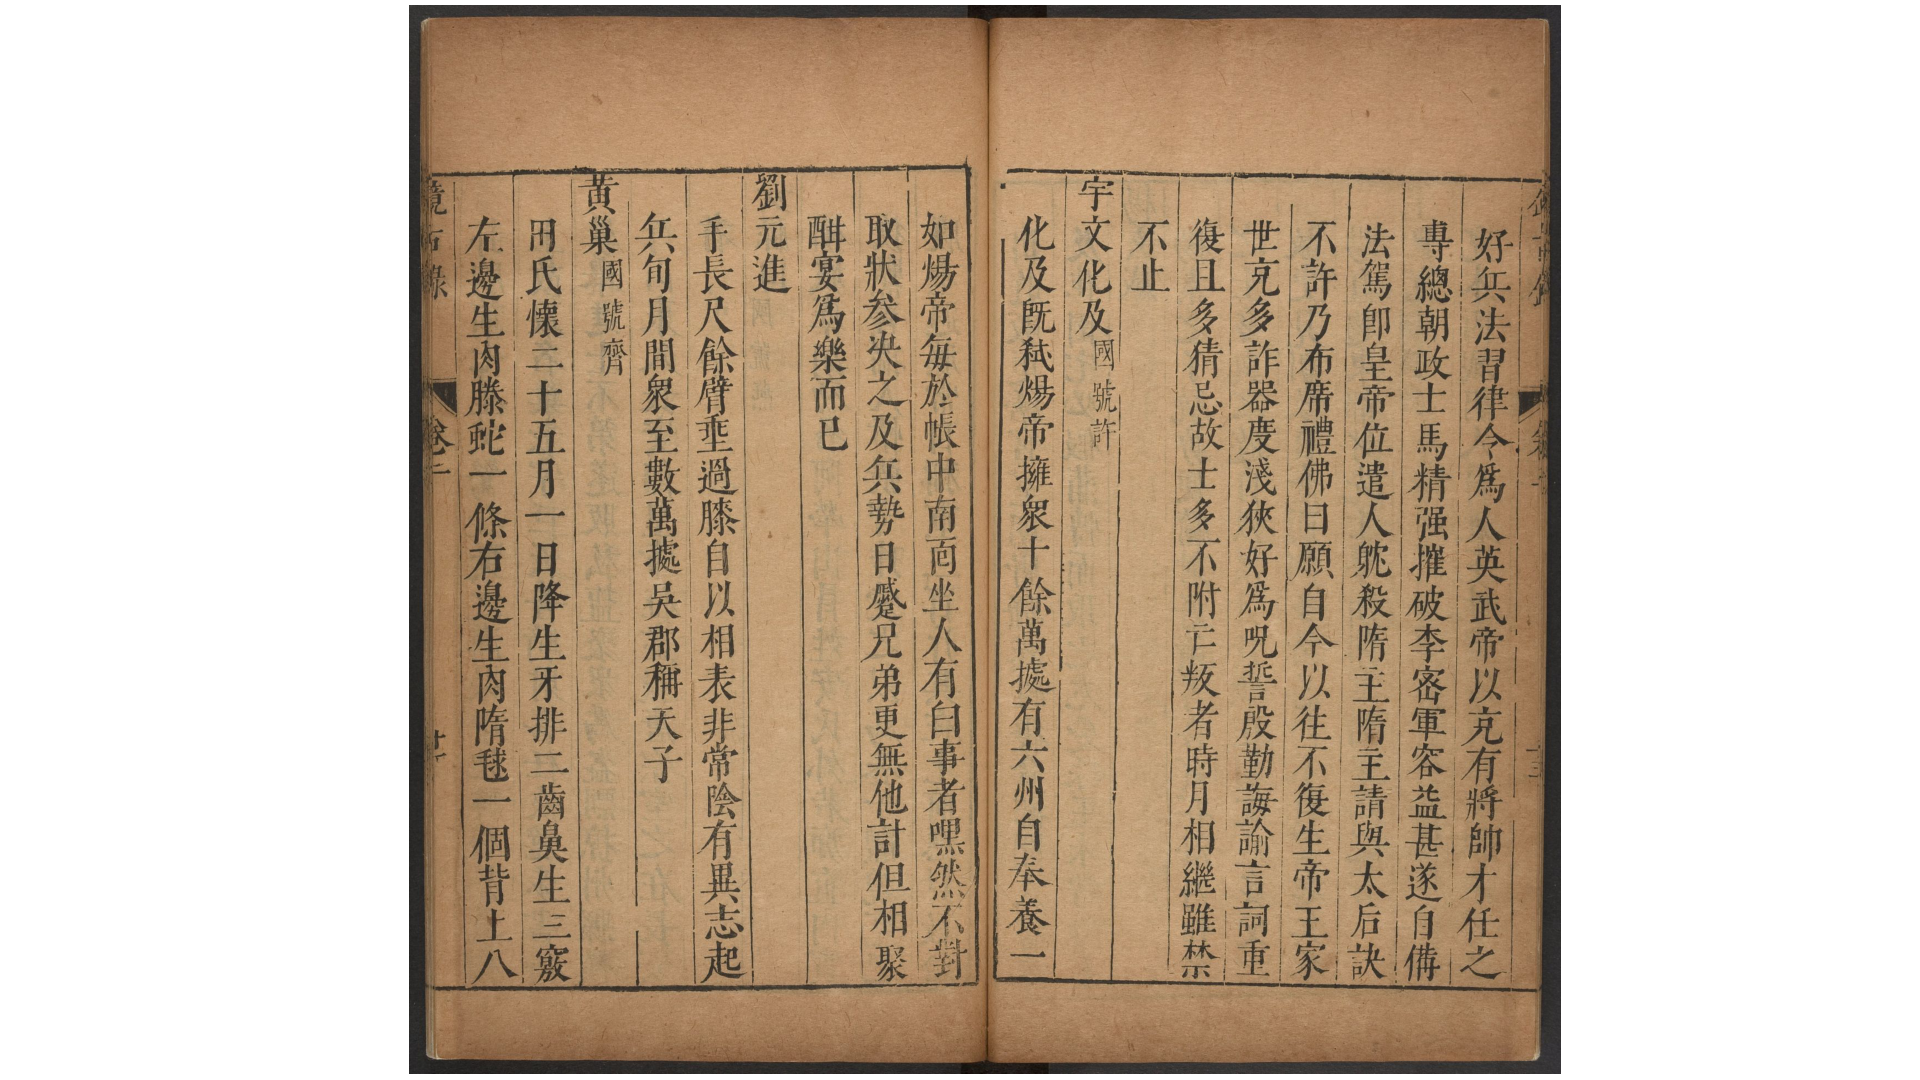 好兵法習律令爲人英武帝以充有將帥才任之
專總朝政士馬精强摧破李密軍容益甚遂自備
法駕卽皇帝位遣人鴆殺隋主隋主請與太后訣
不許乃布席禮佛曰願自今以往不復生帝王家
世充多詐器度淺狹好爲呪誓殷勤誨諭言詞重
復且多猜忌故士多不附亡叛者時月相繼雖禁
不止
宇文化及國號許
化及旣弑煬帝擁衆十餘萬據有六州自奉養一
如煬帝每於帳中南面坐人有白事者嘿然不對
取狀參決之及兵勢日蹙兄弟更無他計但相聚
酣宴爲樂而已
劉元進
手長尺餘臂垂過膝自以相表非常陰有異志起
兵旬月間衆至數萬據吳郡稱天子
黃巢國號齊
田氏懷二十五月一日降生牙排二齒鼻生三竅
左邊生肉滕蛇一條右邊生肉隋毬一個背上八
鏡古錄
卷二
廿